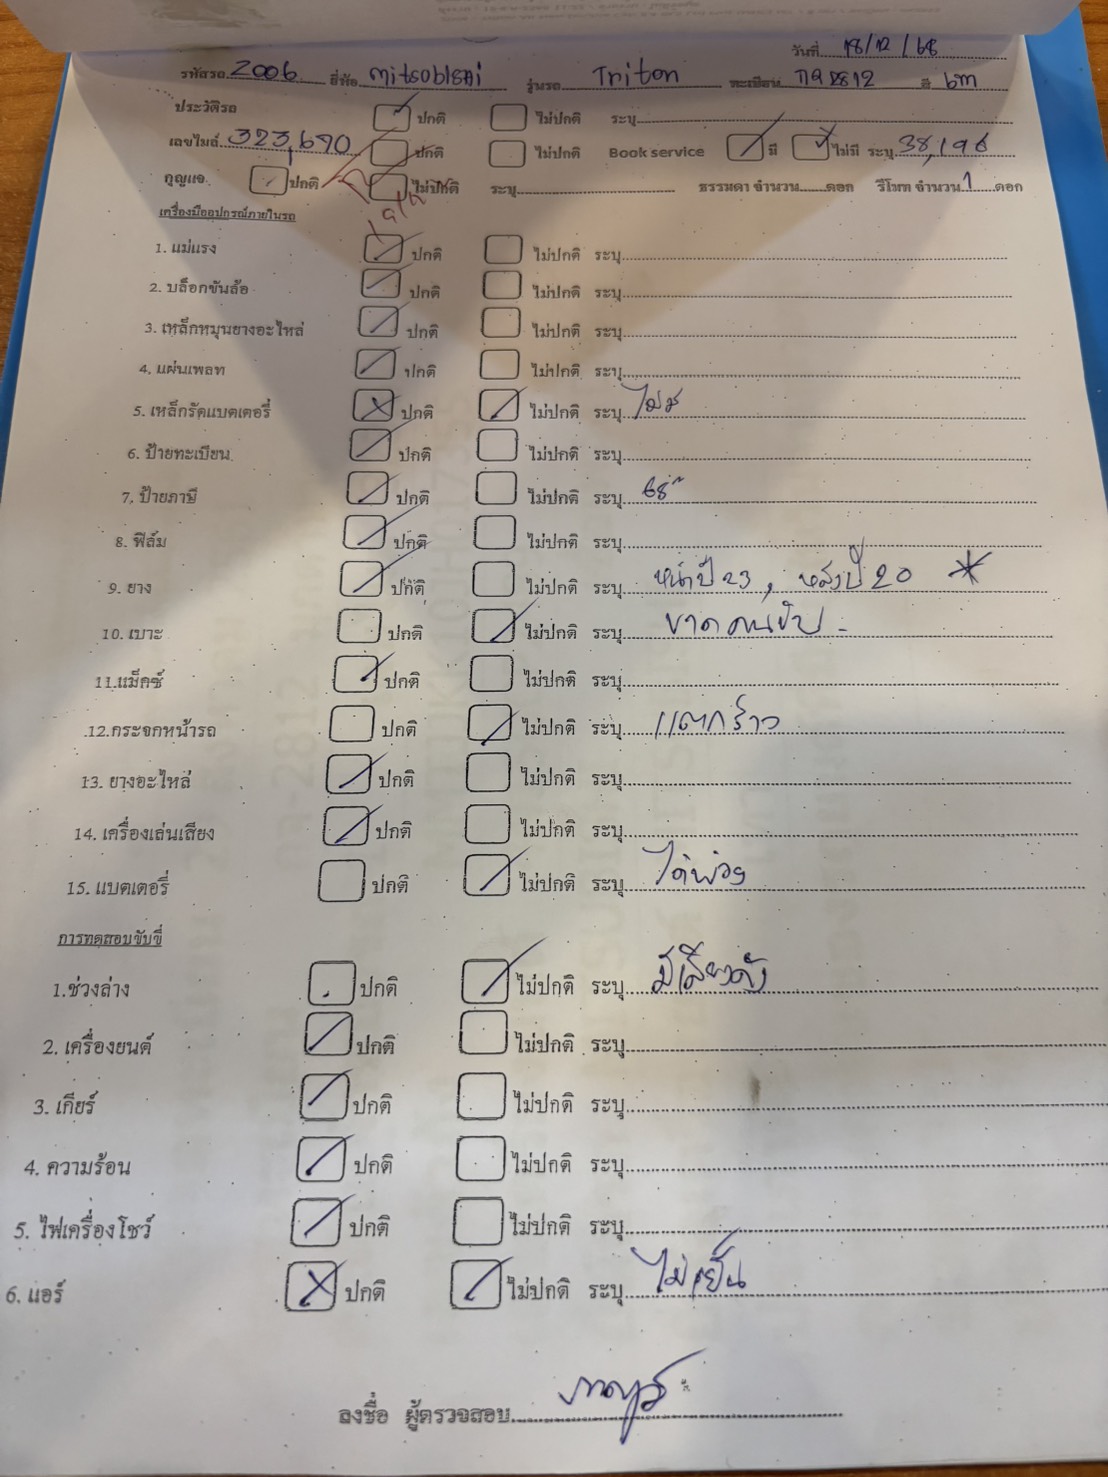 วันที่ 18/12/68
รหัสรถ 2006 ยี่ห้อ mitsobisai รุ่นรถ Triton ทะเบียน 2812 สี
ประวัติรถ ปกติ ไม่ปกติ ระบุ
เลขไมล์ 323,690 ปกติ ไม่ปกติ Book service มี ไม่มี ระบุ 38,196
กุญแจ ปกติ ไม่ปกติ ระบุ ธรรมดา จำนวน ดอก รีโมท จำนวน 1 ดอก
เครื่องมืออุปกรณ์ภายในรถ
1. แม่แรง ปกติ ไม่ปกติ ระบุ
2. บล็อกขันล้อ ปกติ ไม่ปกติ ระบุ
3. เหล็กหมุนยางอะไหล่ ปกติ ไม่ปกติ ระบุ
4. แผ่นเพลท ปกติ ไม่ปกติ ระบุ
5. เหล็กรัดแบตเตอรี่ ปกติ ไม่ปกติ ระบุ ไม่มี
6. ป้ายทะเบียน ปกติ ไม่ปกติ ระบุ
7. ป้ายภาษี ปกติ ไม่ปกติ ระบุ 68
8. ฟิล์ม ปกติ ไม่ปกติ ระบุ
9. ยาง ปกติ ไม่ปกติ ระบุ หน้าปี 23, หลังปี 20 *
10. เบาะ ปกติ ไม่ปกติ ระบุ ขาดคนขับ
11.แม็กซ์ ปกติ ไม่ปกติ ระบุ
12.กระจกหน้ารถ ปกติ ไม่ปกติ ระบุ แตกร้าว
13. ยางอะไหล่ ปกติ ไม่ปกติ ระบุ
14. เครื่องเล่นเสียง ปกติ ไม่ปกติ ระบุ
15. แบตเตอรี่ ปกติ ไม่ปกติ ระบุ ได้พ่วง
การทดสอบขับขี่
1.ช่วงล่าง ปกติ ไม่ปกติ ระบุ มีเสียงดัง
2. เครื่องยนต์ ปกติ ไม่ปกติ ระบุ
3. เกียร์ ปกติ ไม่ปกติ ระบุ
4. ความร้อน ปกติ ไม่ปกติ ระบุ
5. ไฟเครื่องโชว์ ปกติ ไม่ปกติ ระบุ
6. แอร์ ปกติ ไม่ปกติ ระบุ ไม่เย็น
ลงชื่อ ผู้ตรวจสอบ